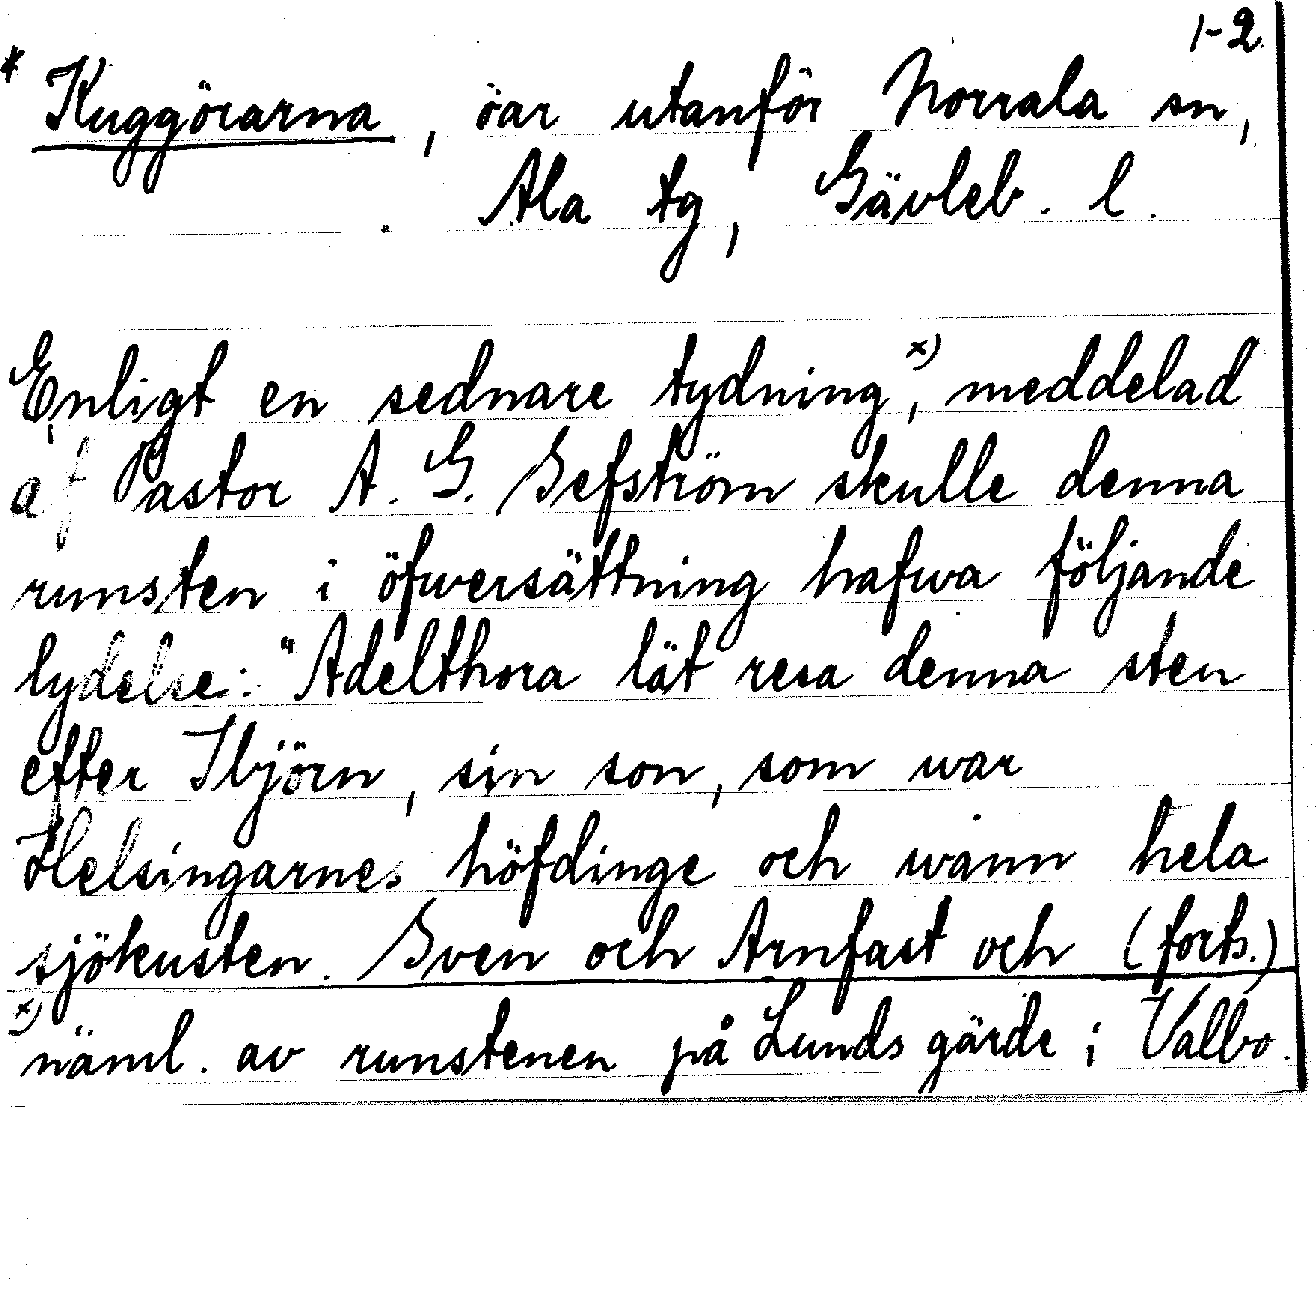 1-2
* Kuggörarna, öar utanför Norrala sn,
Ala tg, Gävleb. l.
Enligt en sednare tydning x), meddelad
af Pastor A. G. Sefström skulle denna
runsten i öfwersättning hafwa följande
lydelse: "Adelthora lät resa denna sten
efter Ibjörn, sin son, som war
Helsingarnes höfdinge och wann hela
sjökusten. Sven och Arnfast och (forts.)
x) näml. av runstenen på Lunds gärde i Valbo.